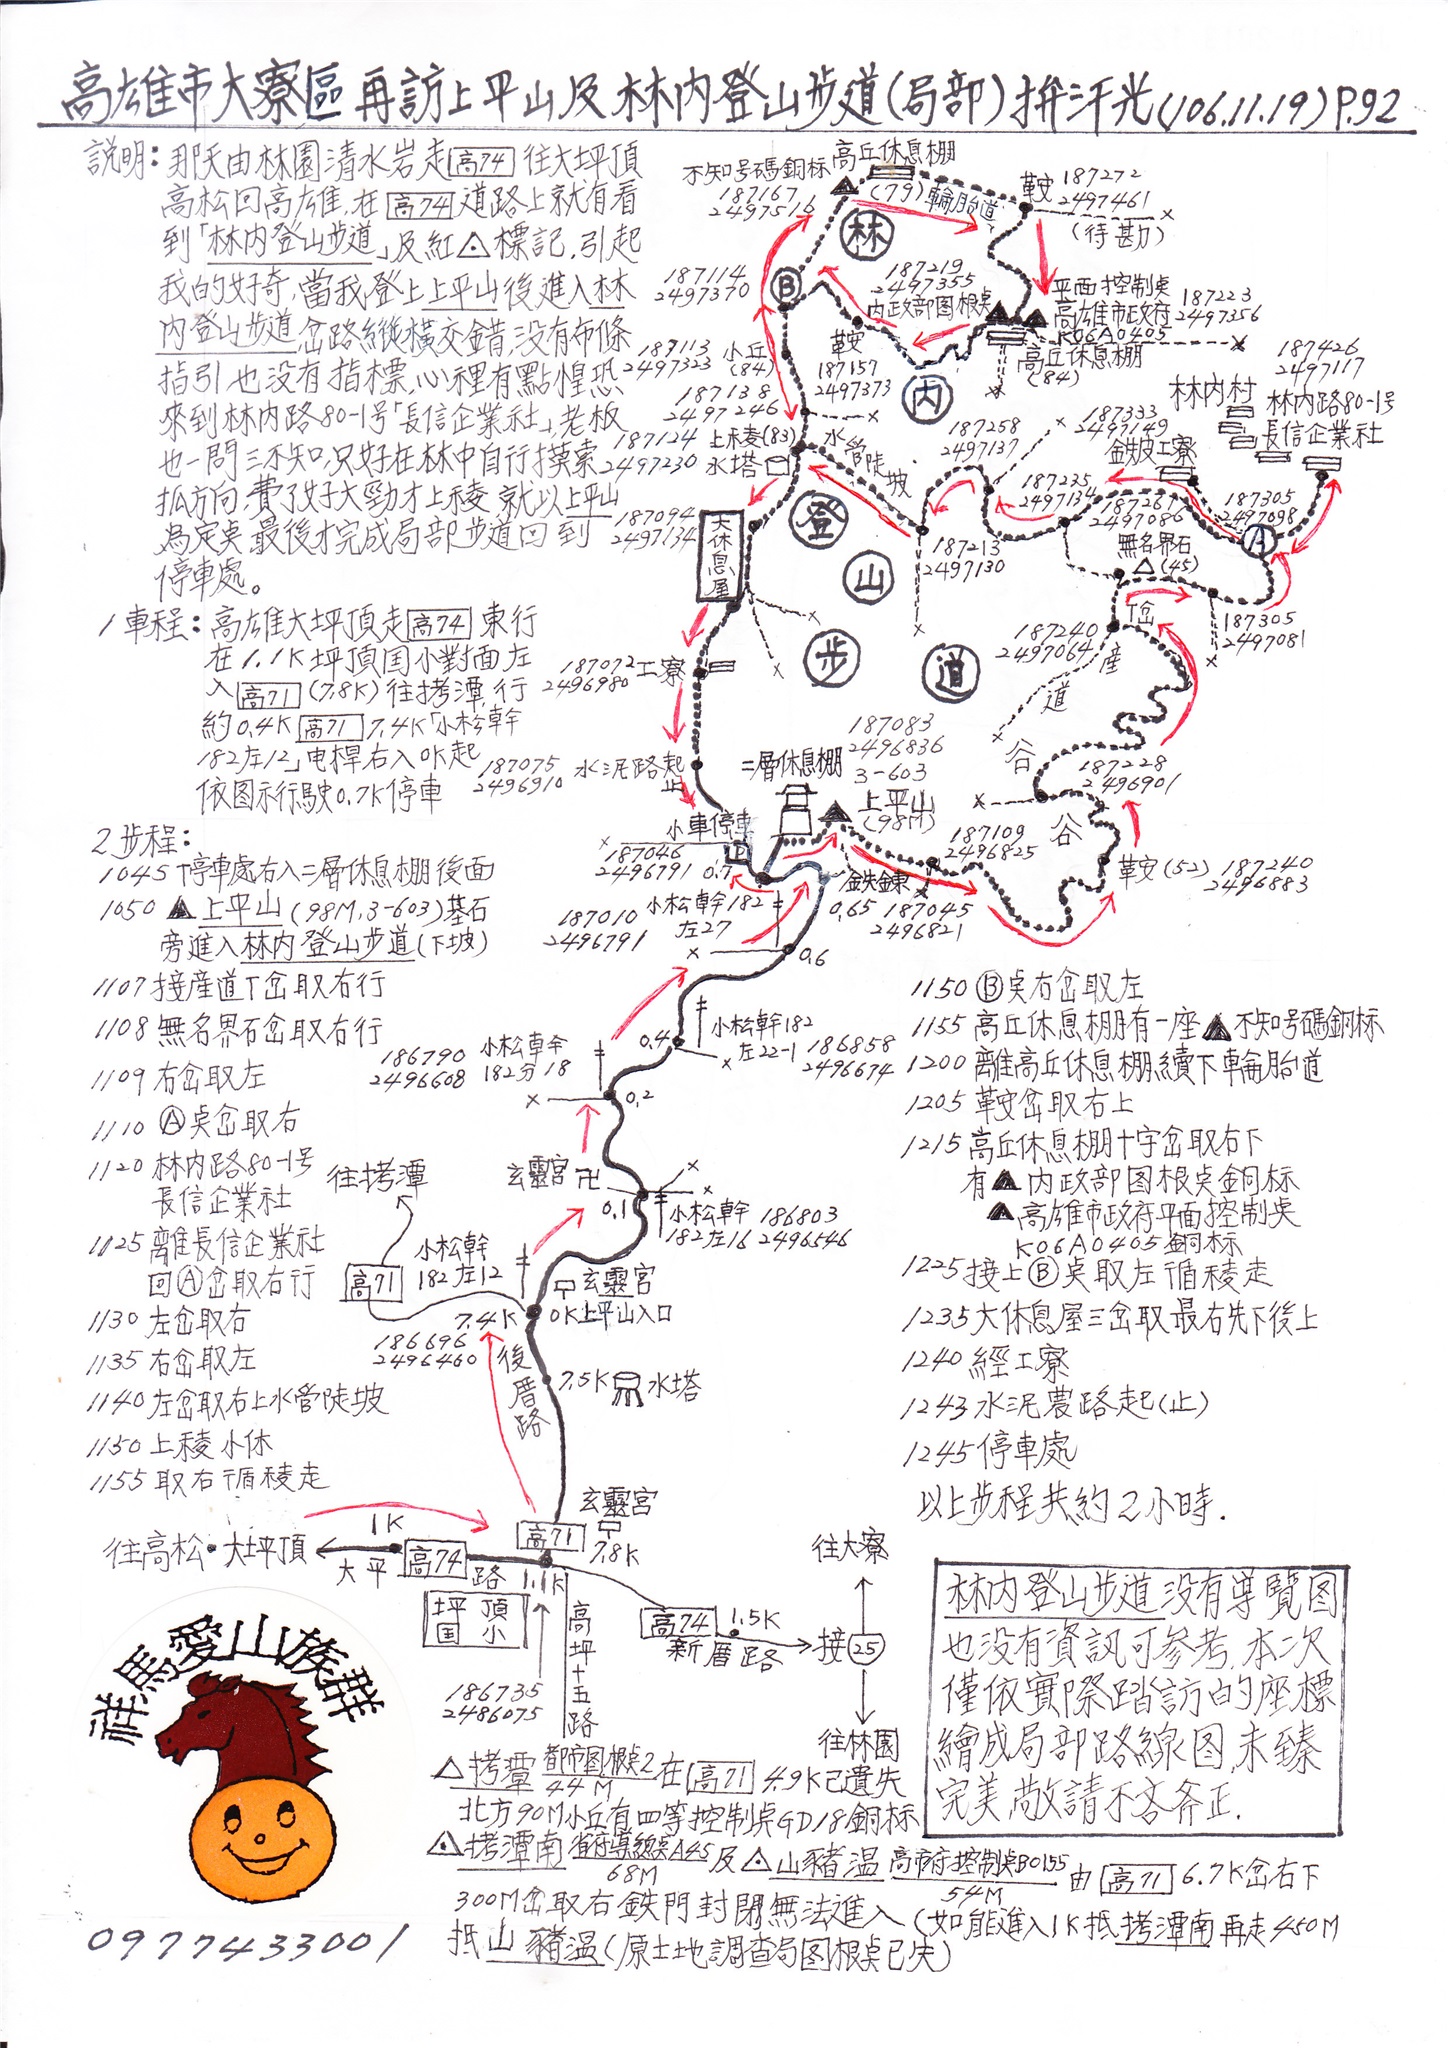 高雄市大寮區再訪上平山及林內登山步道(局部)拚汗光(106.11.19)P.92
說明：那天由林園清水岩走高74往大坪頂
高松回高雄,在高74道路上就有看
到「林內登山步道」及紅△標記,引起
我的好奇,當我登上上平山後進入林
內登山步道,岔路縱橫交錯,沒有布條
指引也沒有指標,心裡有點惶恐
來到林內路80-1号「長信企業社」,老板
也一問三不知,只好在林中自行摸索
抓方向,費了好大勁才上稜,就以上平山
為定点最後才完成局部步道回到
停車處。
1車程：高雄大坪頂走高74東行
在1.1K坪頂国小對面左
入高71(7.8K)往拷潭,行
約0.4K高71 7.4K「小松幹
182左12」电桿右入0K起
依图示行駛0.7K停車
2步程：
1045↑停車處右入二層休息棚後面
1050▲上平山(98M,3-603)基石
旁進入林內登山步道(下坡)
1107接產道下岔取右行
1108無名界石岔取右行
1109右岔取左
1110Ⓐ点岔取右
1120林內路80-1号
長信企業社
1125離長信企業社
回Ⓐ岔取右行
1130左岔取右
1135右岔取左
1140左岔取右上水管陡坡
1150上稜小休
1155取右循稜走
1150Ⓑ点右岔取左
1155高丘休息棚有一座▲不知号碼銅标
1200離高丘休息棚續下輪胎道
1205鞍岔取右上
1215高丘休息棚十字岔取右下
有▲內政部图根点銅标
▲高雄市政府平面控制点
K06A0405銅标
1225接上Ⓑ点取左循稜走
1235大休息屋三岔取最右先下後上
1240經工寮
1243水泥農路起(止)
1245停車處
以上步程共約2小時.
不知号碼銅标
187167
2497516
高丘休息棚
(79)
輪胎道
鞍
187272
2497461
(待勘)
林
187114
2497370
B
187219
2497355
內政部图根点
平面控制点
高雄市政府
K06A0405
187223
2497356
高丘休息棚
(84)
187113
2497323
小丘
(84)
鞍
187157
2497373
內
187138
2497246
187426
2497117
林內村
林內路80-1号
長信企業社
187124
2497230
上稜(83)
水塔
水管陡坡
187258
2497137
187333
2497149
鉄皮工寮
187235
2497134
187267
2497086
187305
2497098
A
187094
2497134
大休息屋
登
山
步
道
187213
2497130
無名界石
△(45)
187305
2497081
187240
2497064
岔
產
道
187072
2496980
工寮
187075
2496910
水泥路起
止
二層休息棚
187083
2496836
3-603
上平山
(98M)
谷
187228
2496901
谷
小車停車
187046
2496791
0.7
P
鉄鍊
187109
2496825
鞍(52)
187240
2496883
小松幹182
左27
187010
2496791
0.65
187045
2496821
0.6
小松幹182
左22-1
186858
2496674
0.4
186790
2496608
小松幹
182分18
0.2
玄靈宮
卍
0.1
小松幹
182左16
186803
2496546
往拷潭
高71
小松幹
182左12
玄靈宮
7.4K
0K上平山入口
186696
2496460
後厝路
7.5K
水塔
玄靈宮
高71
7.8K
往高松·大坪頂
1K
大平
高74
路
1.1K
坪頂
国小
高坪十五路
186735
2486075
高74
1.5K
新厝路
接25
往大寮
往林園
林內登山步道沒有導覽图
也沒有資訊可參考,本次
僅依實際踏訪的座標
繪成局部路線图,未臻
完美敬請不吝斧正.
祥馬愛山族群
0977433001
△拷潭都市图根点2在高71 4.9K已遺失
44M
北方90M小丘有四等控制点GD18銅标
△拷潭南省府導線点A45及△山豬溫高市府控制点B0155由高71 6.7K岔右下
68M
54M
300M岔取右鉄門封閉無法進入(如能進入1K抵拷潭南再走450M
抵山豬溫(原土地調查局图根点已失)